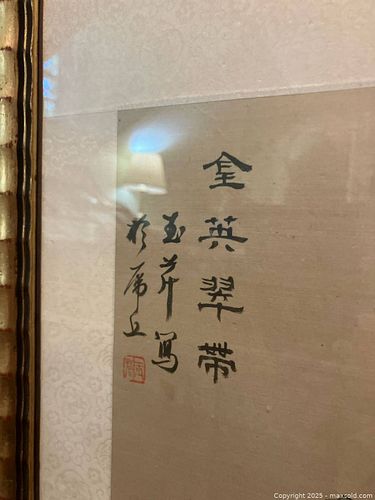 金英翠帶
玉芹寫
於虎丘
Copyright 2025 - maxsold.com